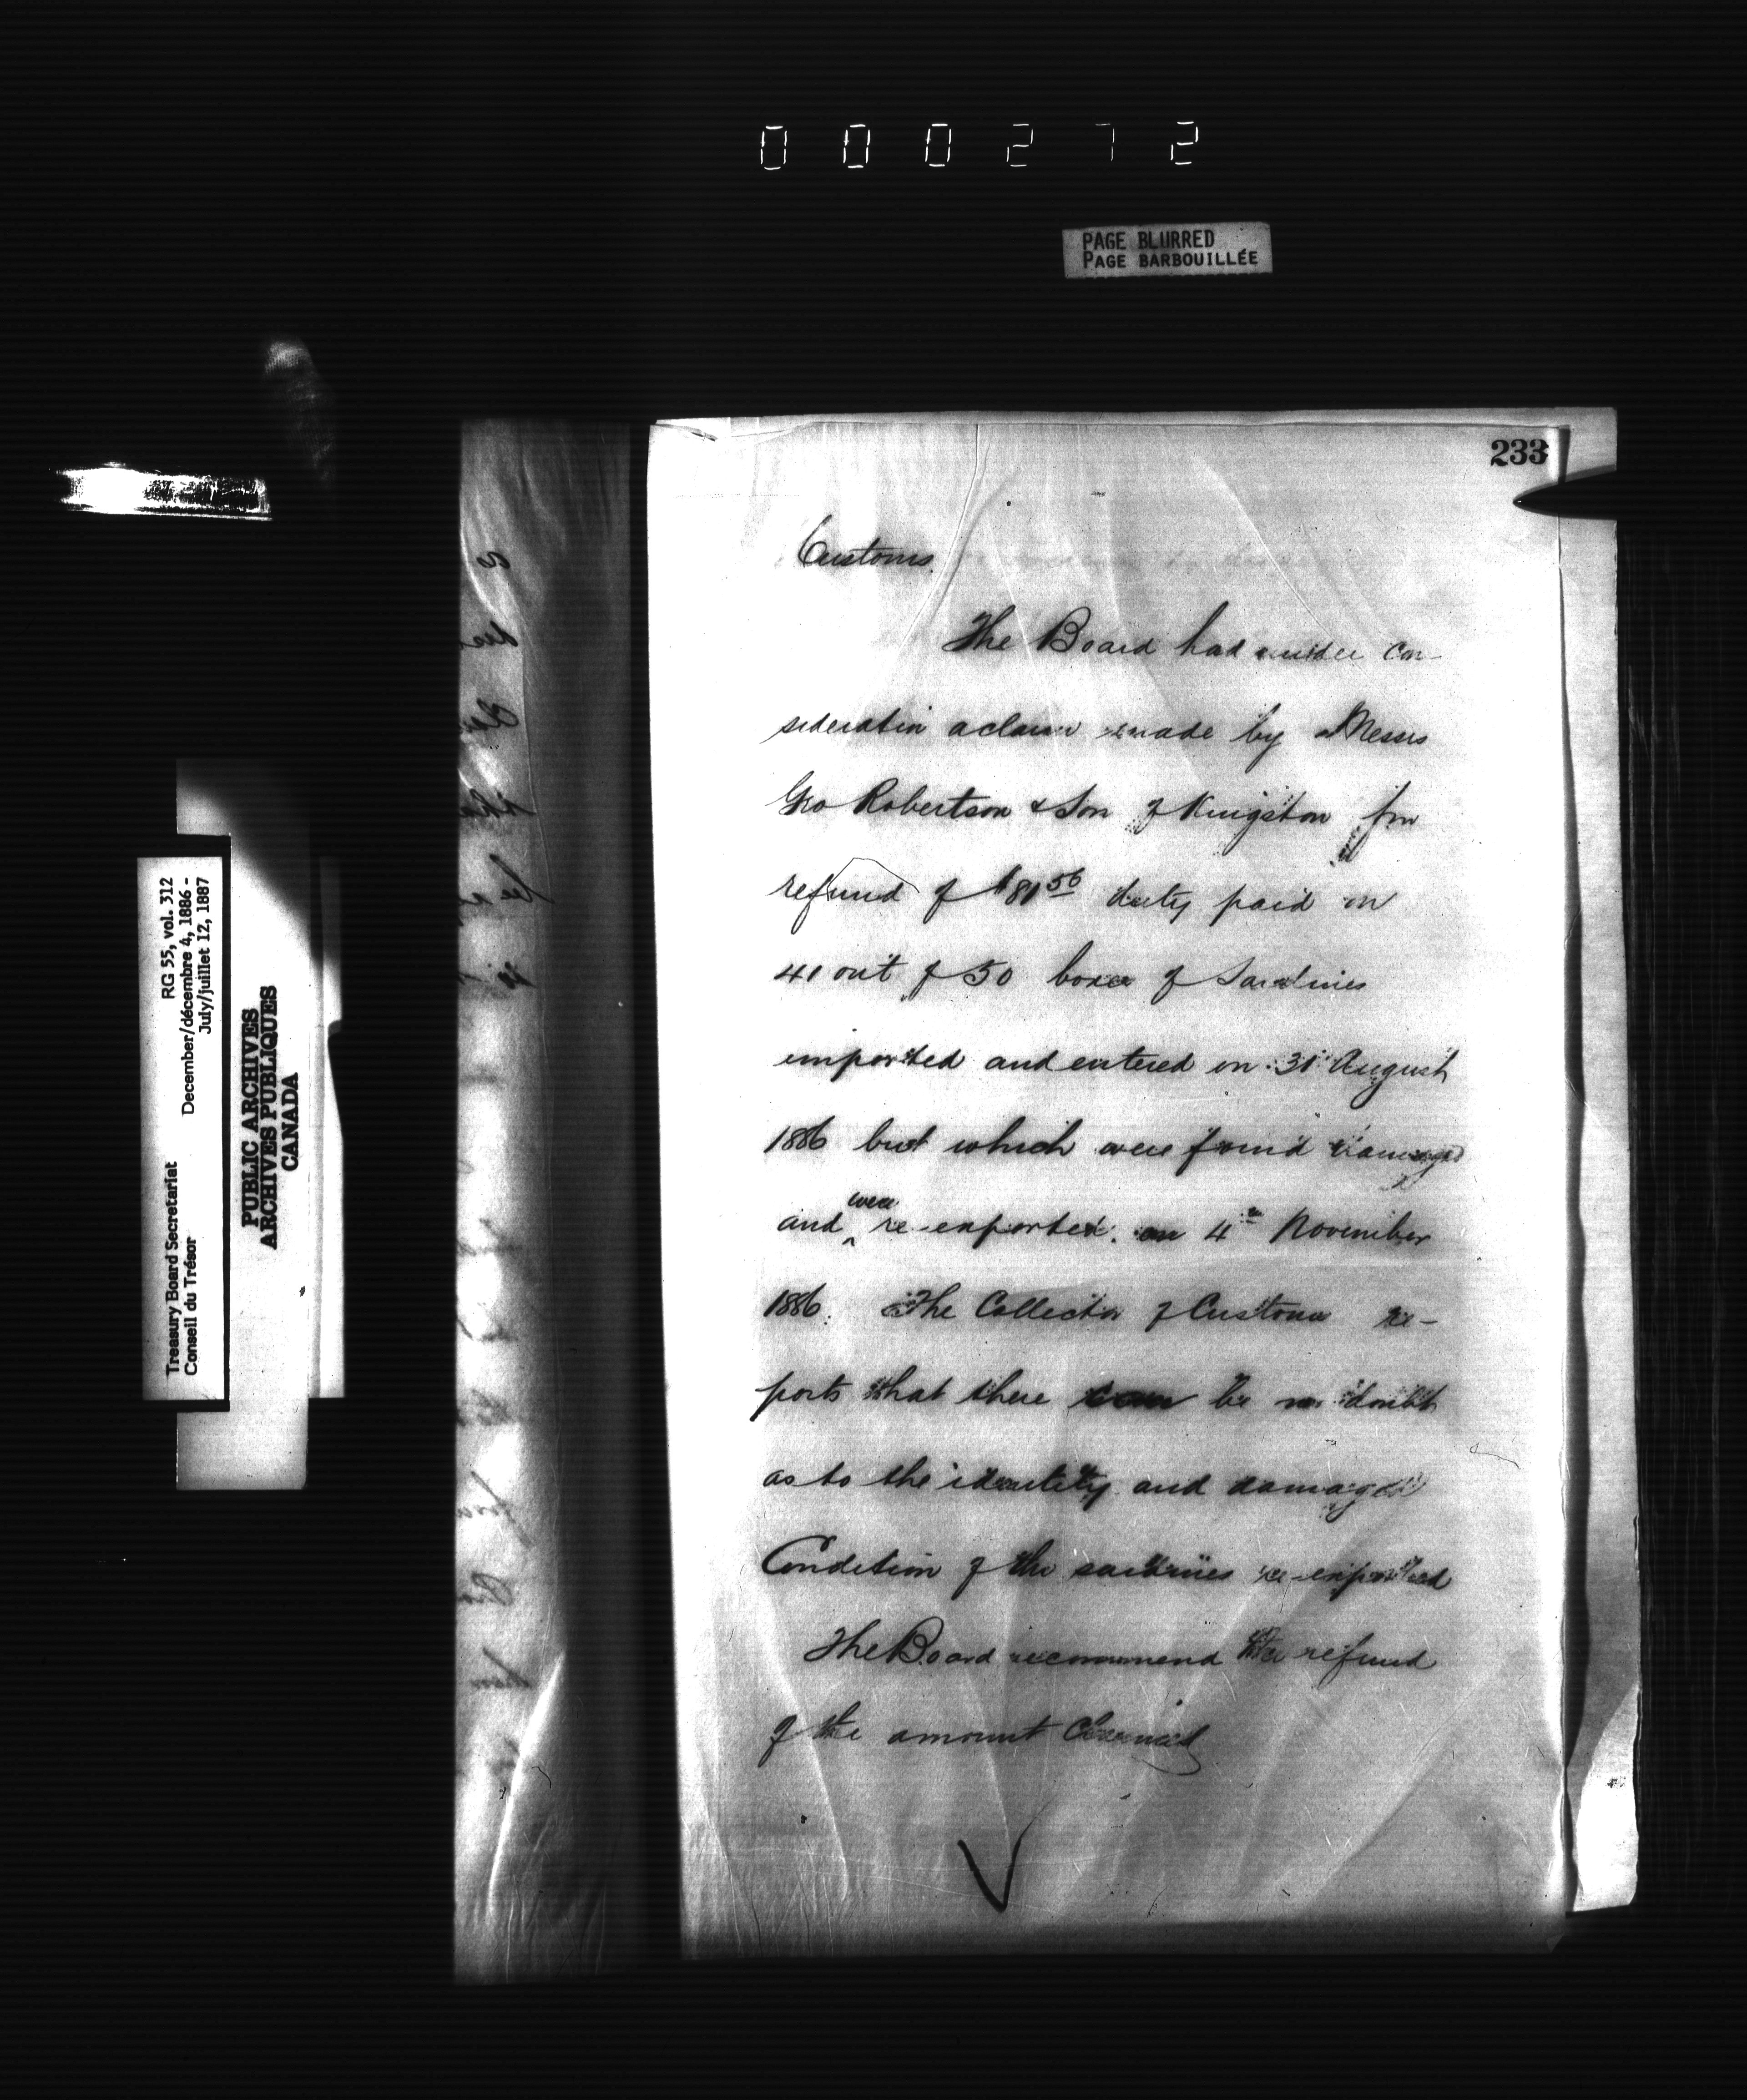 000272
PAGE BLURRED
PAGE BARBOUILLÉE
233
Customs.
The Board had under con-
sideration a claim made by Messrs
Geo Robertson & Son of Kingston for
refund of $81 56 duty paid on
41 out of 50 boxes of Sardines
imported and entered on 31 August
1886 but which were found damaged
and ^were re-exported. on 4th November
1886. The Collector of Customs re-
ports that there can be no doubt
as to the identity and damaged
Condition of the sardines re-exported
The Board recommend the refund
of the amount Claimed
Treasury Board Secretariat RG 55, vol. 312
Conseil du Trésor December/décembre 4, 1886 -
July/juillet 12, 1887
PUBLIC ARCHIVES
ARCHIVES PUBLIQUES
CANADA